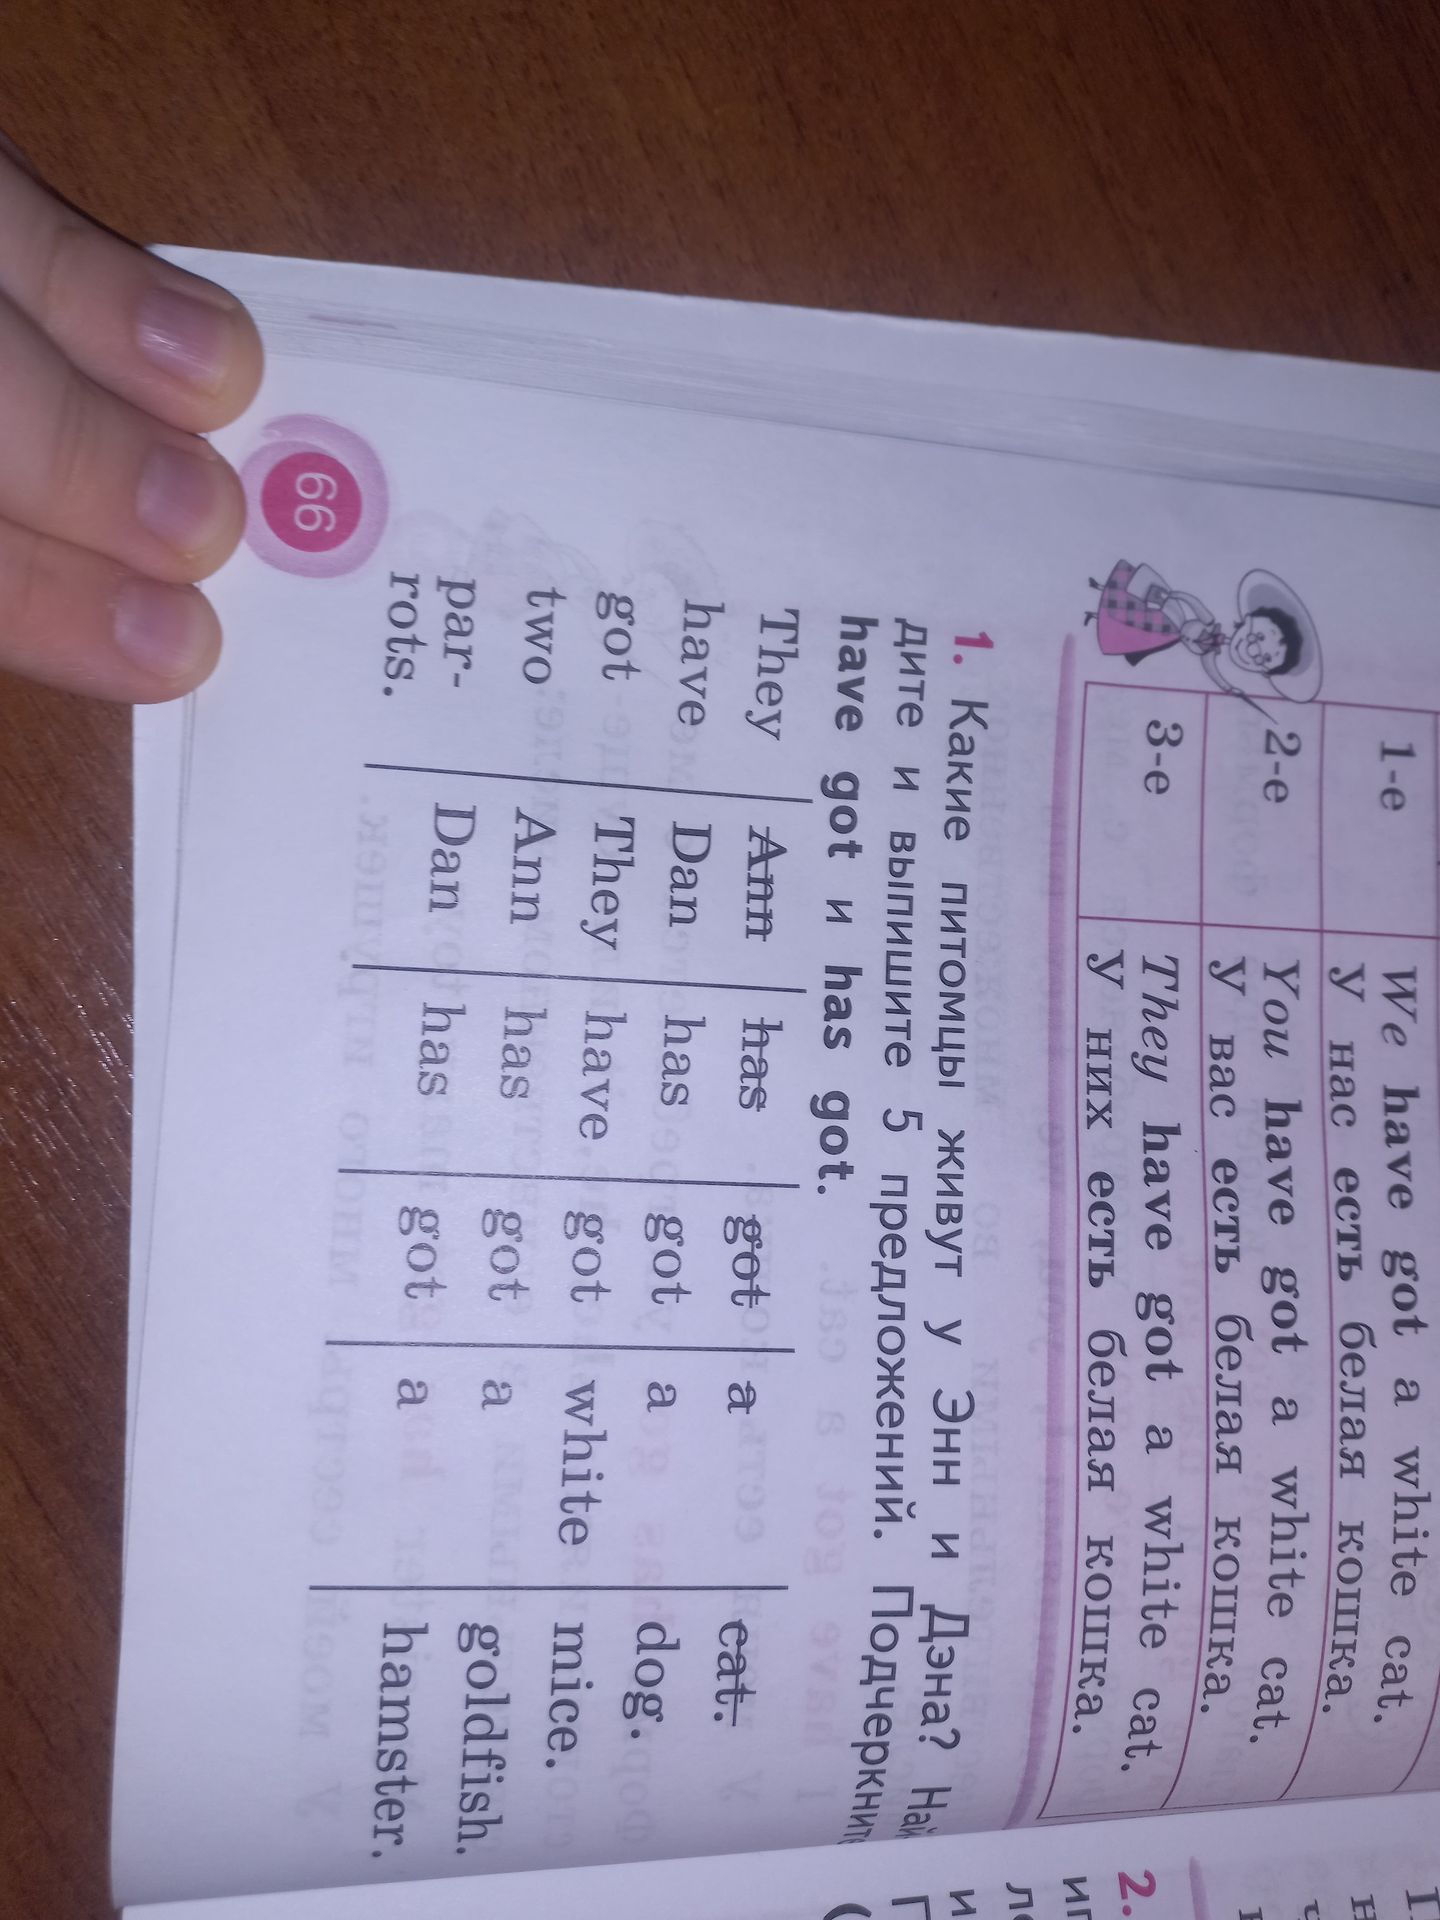 1-е We have got a white cat.
У нас есть белая кошка.
2-е You have got a white cat.
У вас есть белая кошка.
3-е They have got a white cat.
У них есть белая кошка.
1. Какие питомцы живут у Энн и Дэна? Най
дите и выпишите 5 предложений. Подчеркните
have got и has got.
They Ann has got a cat.
have Dan has got a dog.
got They have got white mice.
two Ann has got a goldfish.
par- Dan has got a hamster.
rots.
66
2.